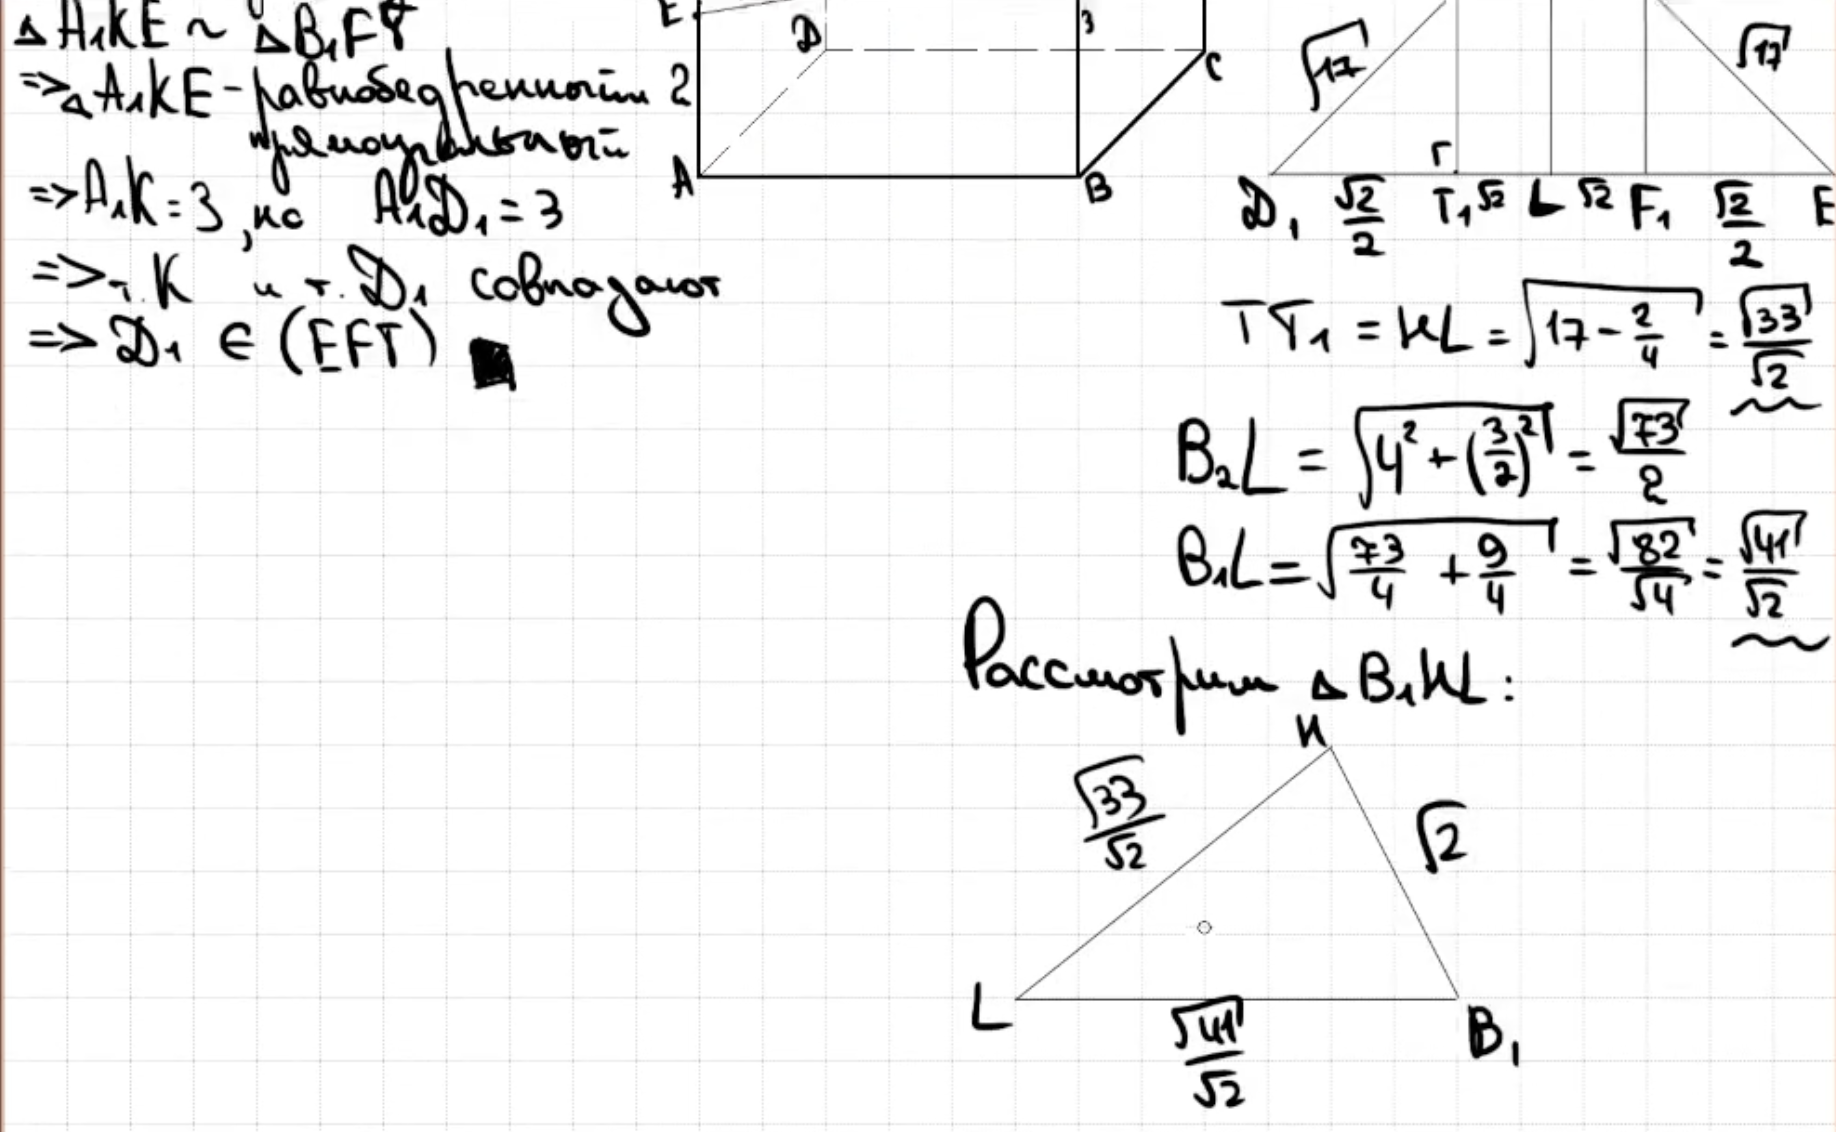 △A₁KE ~ △B₁FT
=> △A₁KE - равнобедренный
прямоугольный
=> A₁K = 3, но A₁D₁ = 3
=> т. K и т. D₁ совпадают
=> D₁ ∈ (EFT)
E
2
A
D
3
B
C
√17
√17
D₁ √2/2 T₁ √2 L √2 F₁ √2/2 E
TT₁ = HL = √(17 - 2/4) = √33/√2
B₂L = √(4² + (3/2)²) = √73/2
B₁L = √(73/4 + 9/4) = √82/√4 = √41/√2
Рассмотрим △B₁HL:
H
√33/√2
√2
L
√41/√2
B₁